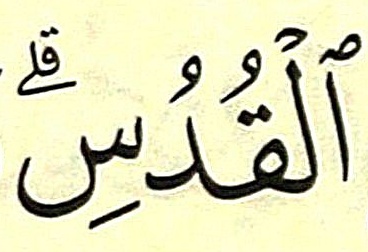 ٱلْقُدُسِۗ